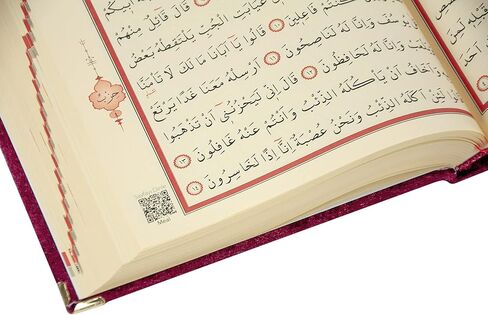 قَالَ قَائِلٌ مِنْهُمْ
غَيَابَتِ الْجُبِّ يَلْتَقِطْهُ بَعْضُ
فَاعِلِينَ ﴿١٠﴾ قَالُوا يَا اَبَانَا مَا لَكَ لَا تَأْمَنَّا
يُوسُفَ وَاِنَّا لَهُ لَنَاصِحُونَ ﴿١١﴾ اَرْسِلْهُ مَعَنَا غَدًا يَرْتَعْ
وَاِنَّا لَهُ لَحَافِظُونَ ﴿١٢﴾ قَالَ اِنِّي لَيَحْزُنُنِي اَنْ تَذْهَبُوا
وَاَخَافُ اَنْ يَأْكُلَهُ الذِّئْبُ وَاَنْتُمْ عَنْهُ غَافِلُونَ ﴿١٣﴾
لَئِنْ اَكَلَهُ الذِّئْبُ وَنَحْنُ عُصْبَةٌ اِنَّا اِذًا لَخَاسِرُونَ ﴿١٤﴾
Meal